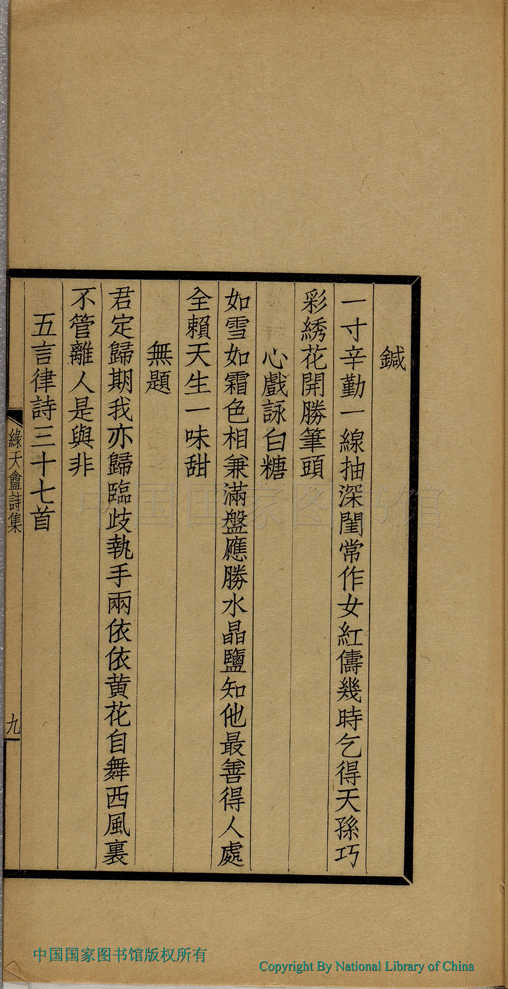 鍼
一寸辛勤一線抽深閨常作女紅儔幾時乞得天孫巧
彩綉花開勝筆頭
心戲詠白糖
如雪如霜色相兼滿盤應勝水晶鹽知他最善得人處
全賴天生一味甜
無題
君定歸期我亦歸臨歧執手兩依依黄花自舞西風裏
不管離人是與非
五言律詩三十七首
綠天盦詩集
九
中国国家图书馆
中国国家图书馆版权所有
Copyright By National Library of China